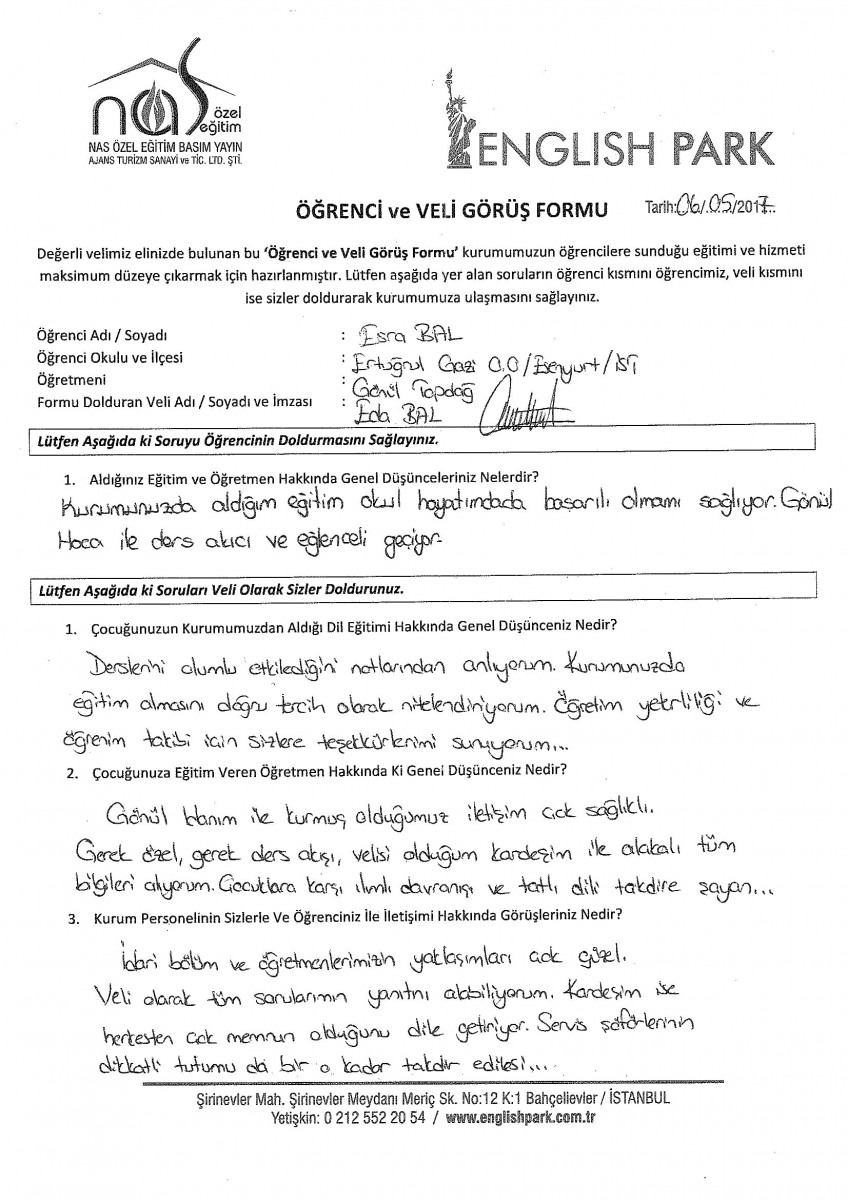 nas özel eğitim
NAS ÖZEL EĞİTİM BASIM YAYIN
AJANS TURİZM SANAYİ ve TİC. LTD. ŞTİ.
ENGLISH PARK
ÖĞRENCİ ve VELİ GÖRÜŞ FORMU
Tarih:06/.05/2017..
Değerli velimiz elinizde bulunan bu 'Öğrenci ve Veli Görüş Formu' kurumumuzun öğrencilere sunduğu eğitimi ve hizmeti
maksimum düzeye çıkarmak için hazırlanmıştır. Lütfen aşağıda yer alan soruların öğrenci kısmını öğrencimiz, veli kısmını
ise sizler doldurarak kurumumuza ulaşmasını sağlayınız.
Öğrenci Adı / Soyadı : Esra BAL
Öğrenci Okulu ve İlçesi : Ertuğrul Gazi O.O/Esenyurt/İST
Öğretmeni : Gönül Topdağ
Formu Dolduran Veli Adı / Soyadı ve İmzası : Eda BAL
Lütfen Aşağıda ki Soruyu Öğrencinin Doldurmasını Sağlayınız.
1. Aldığınız Eğitim ve Öğretmen Hakkında Genel Düşünceleriniz Nelerdir?
Kurumunuzda aldığım eğitim okul hayatımdada başarılı olmamı sağlıyor. Gönül
Hoca ile ders akıcı ve eğlenceli geçiyor.
Lütfen Aşağıda ki Soruları Veli Olarak Sizler Doldurunuz.
1. Çocuğunuzun Kurumumuzdan Aldığı Dil Eğitimi Hakkında Genel Düşünceniz Nedir?
Derslerini olumlu etkilediğini notlarından anlıyorum. Kurumunuzda
eğitim almasını doğru tercih olarak nitelendiriyorum. Öğretim yeterliliği ve
öğrenim takibi için sizlere teşekkürlerimi sunuyorum...
2. Çocuğunuza Eğitim Veren Öğretmen Hakkında Ki Genel Düşünceniz Nedir?
Gönül Hanım ile kurmuş olduğumuz iletişim çok sağlıklı.
Gerek özel, gerek ders akışı, velisi olduğum kardeşim ile alakalı tüm
bilgileri alıyorum. Çocuklara karşı ılımlı davranışı ve tatlı dili takdire şayan...
3. Kurum Personelinin Sizlerle Ve Öğrenciniz İle İletişimi Hakkında Görüşleriniz Nedir?
İdari bölüm ve öğretmenlerimizin yaklaşımları çok güzel.
Veli olarak tüm sorularımın yanıtını alabiliyorum. Kardeşim ise
herkesten çok memnun olduğunu dile getiriyor. Servis şöförlerinin
dikkatli tutumu da bir o kadar takdir edilesi...
Şirinevler Mah. Şirinevler Meydanı Meriç Sk. No:12 K:1 Bahçelievler / İSTANBUL
Yetişkin: 0 212 552 20 54 / www.englishpark.com.tr